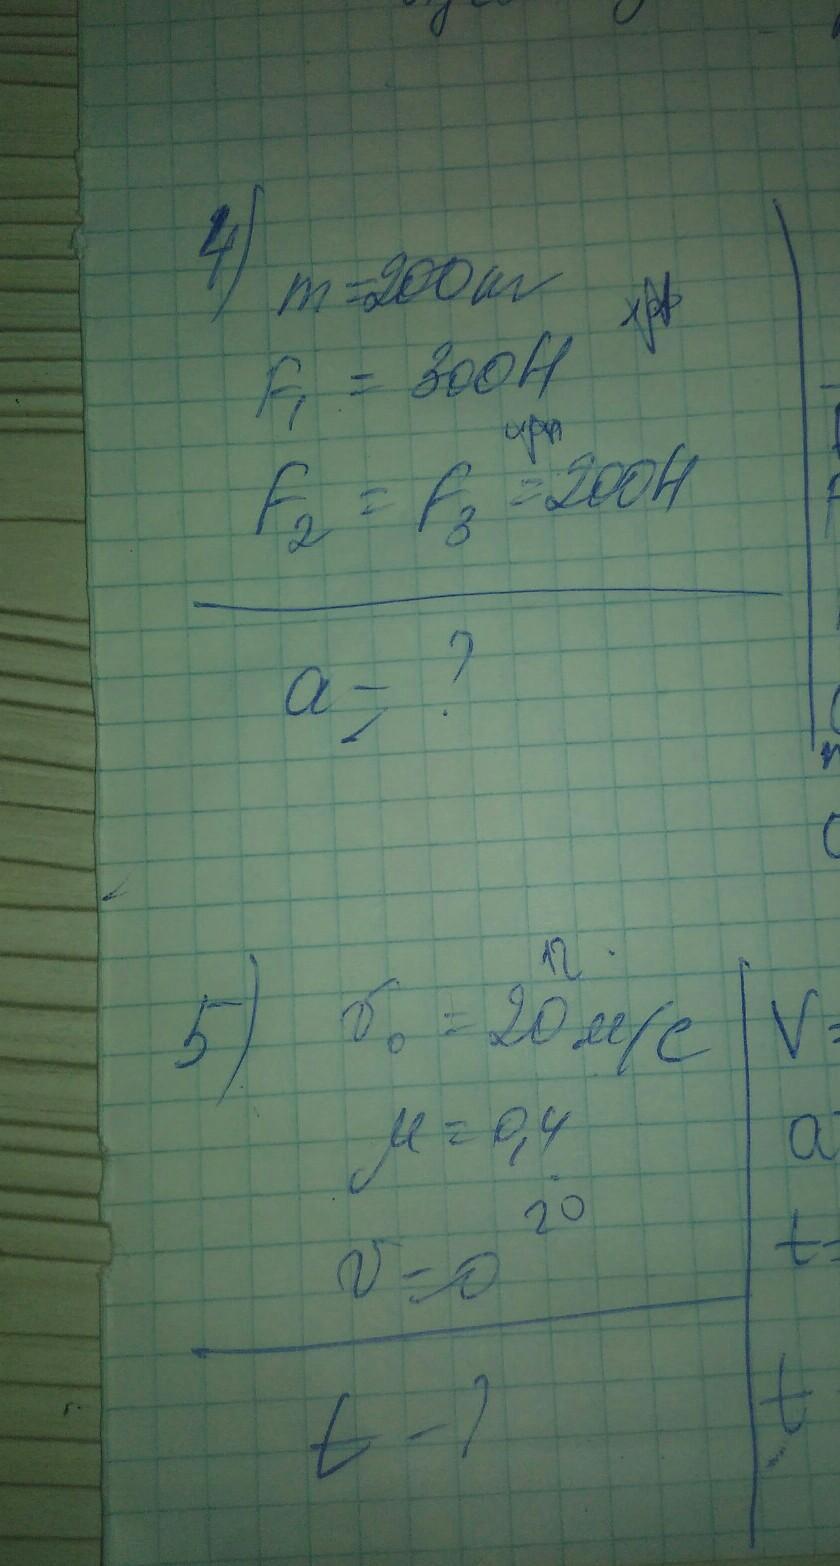 4)
m = 200 кг
F₁ = 300Н
F₂ = F₃ = 200Н
a = ?
5)
v₀ = 20 м/с
μ = 0,4
20
v = 0
t - ?
V =
a
t =
t